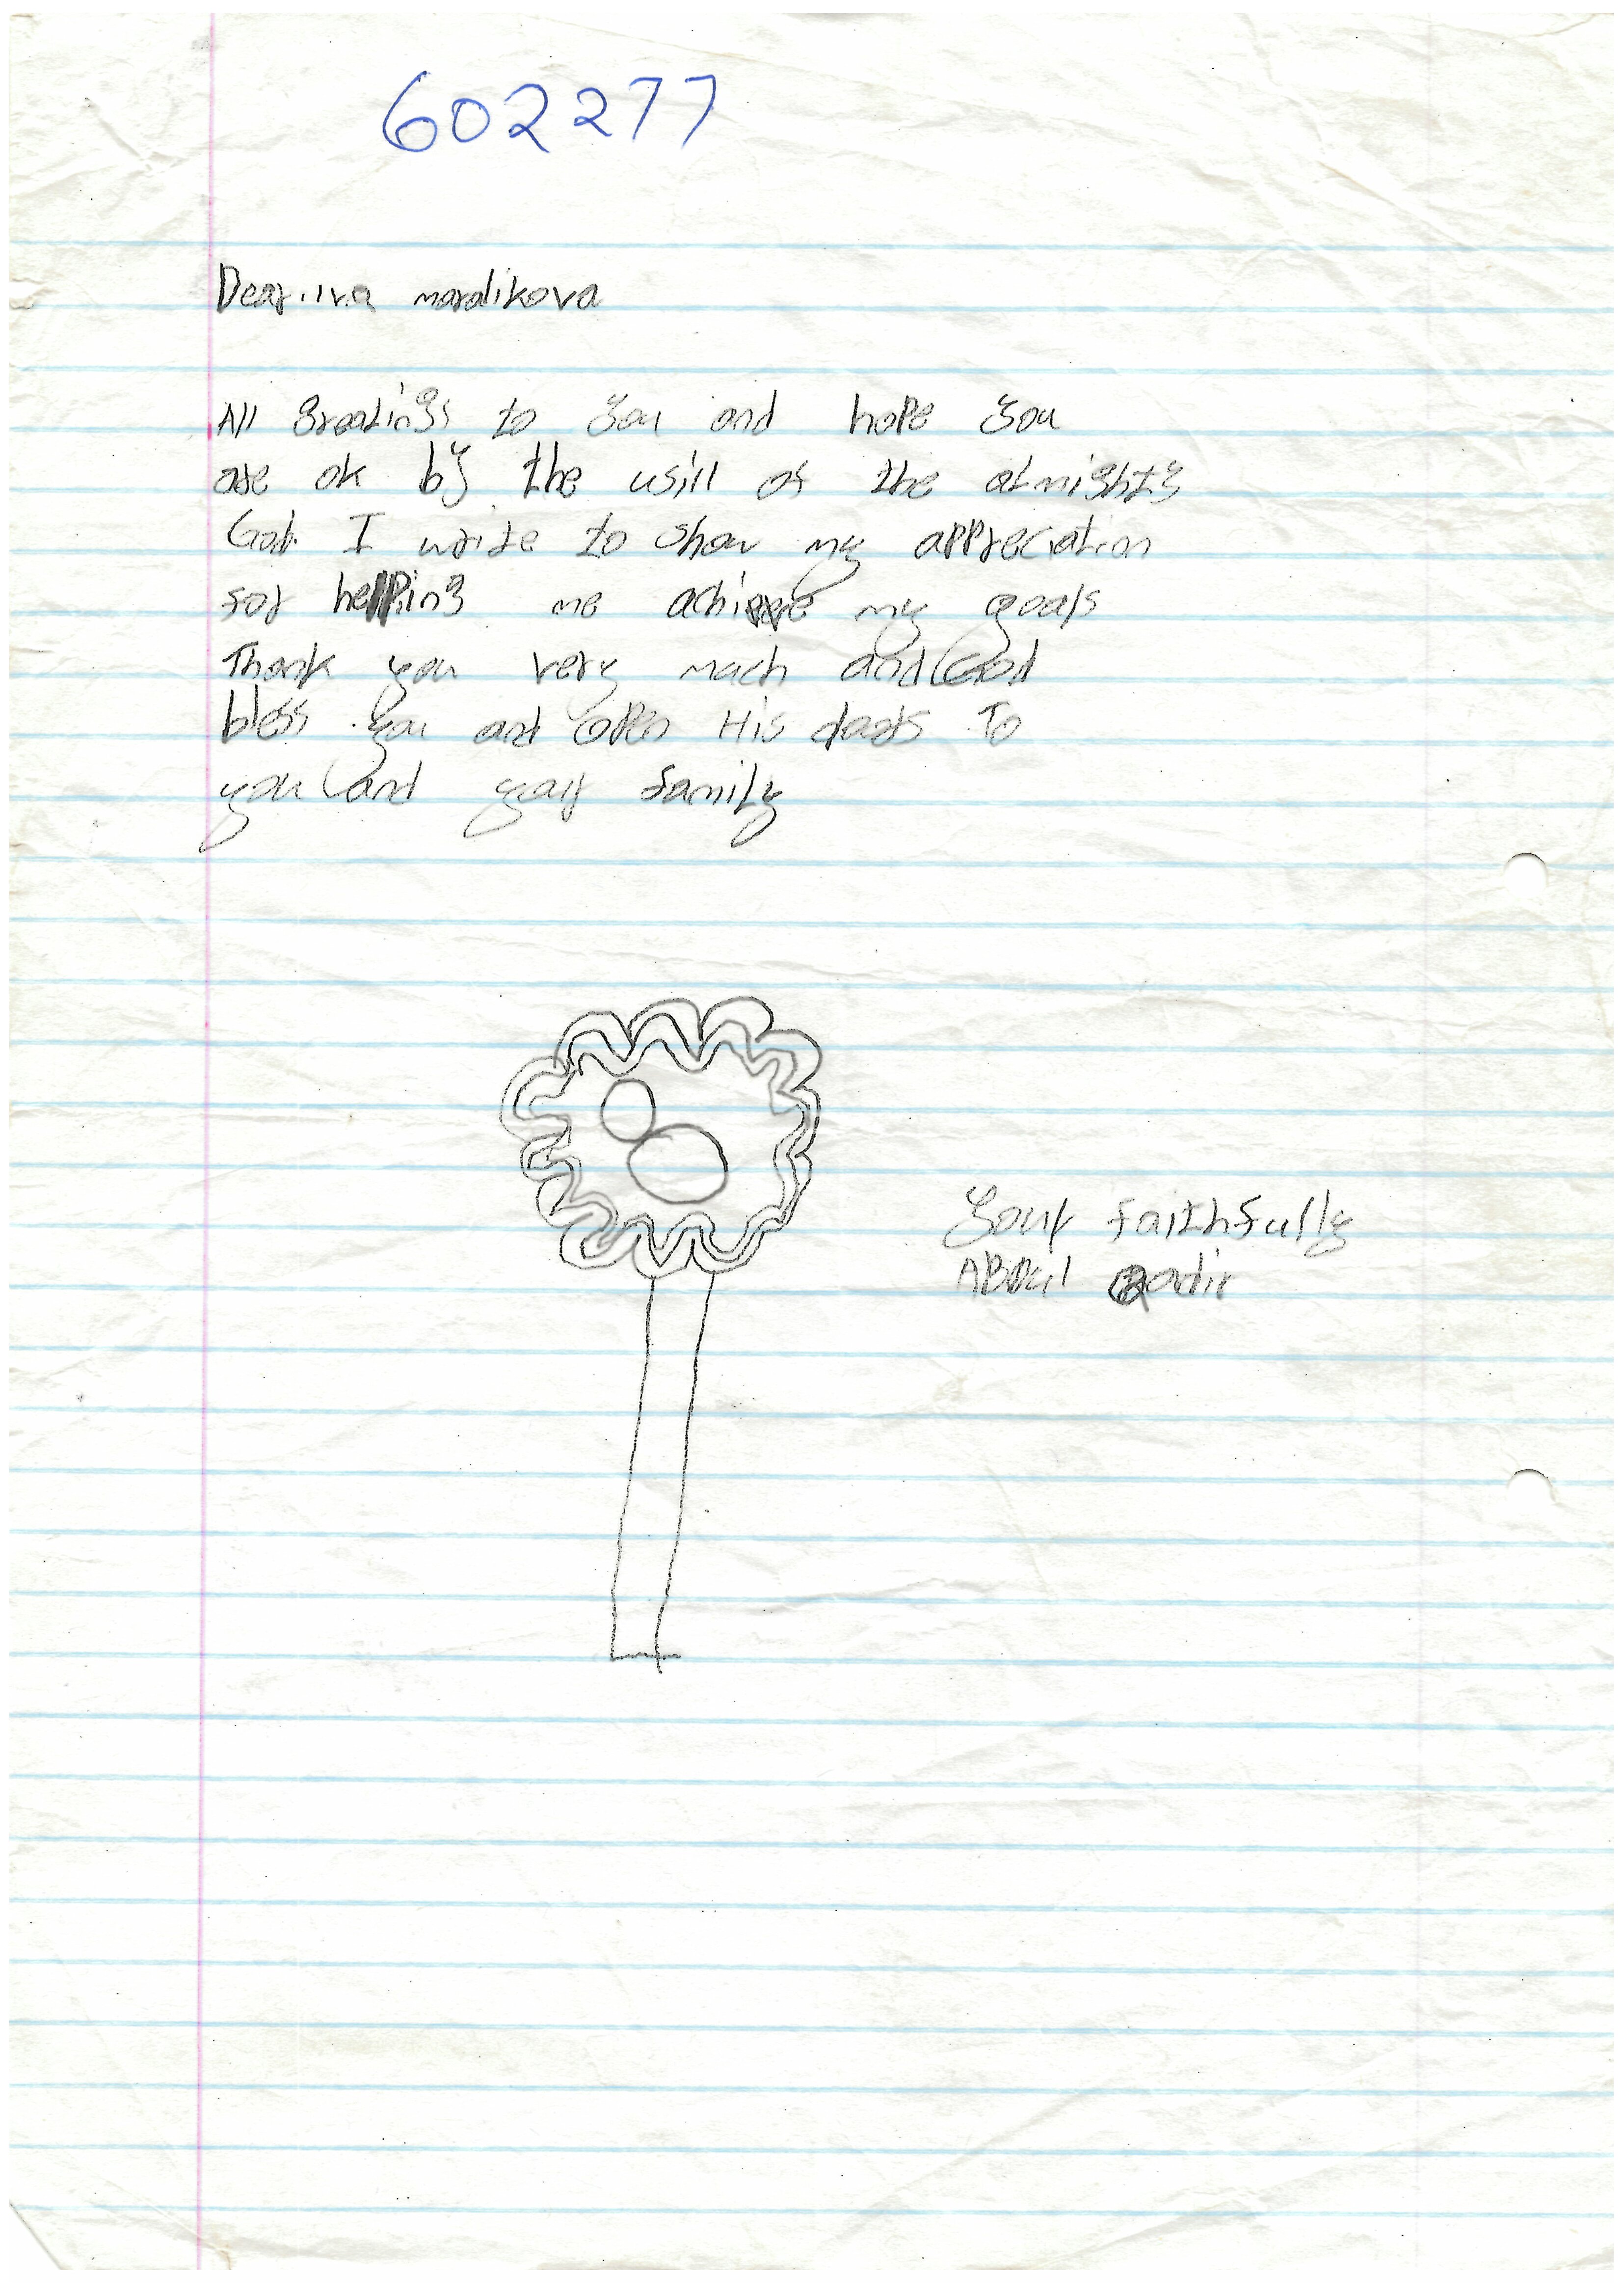 602277
Dear. iva maralikova
All greatings to you and hope you
are ok by the will of the almighty
God. I write to show my appreciation
for helping me achieve my goals
Thank you very much and God
bless you and open His doors To
you and your family
Your faithfully
ABDul Qadir